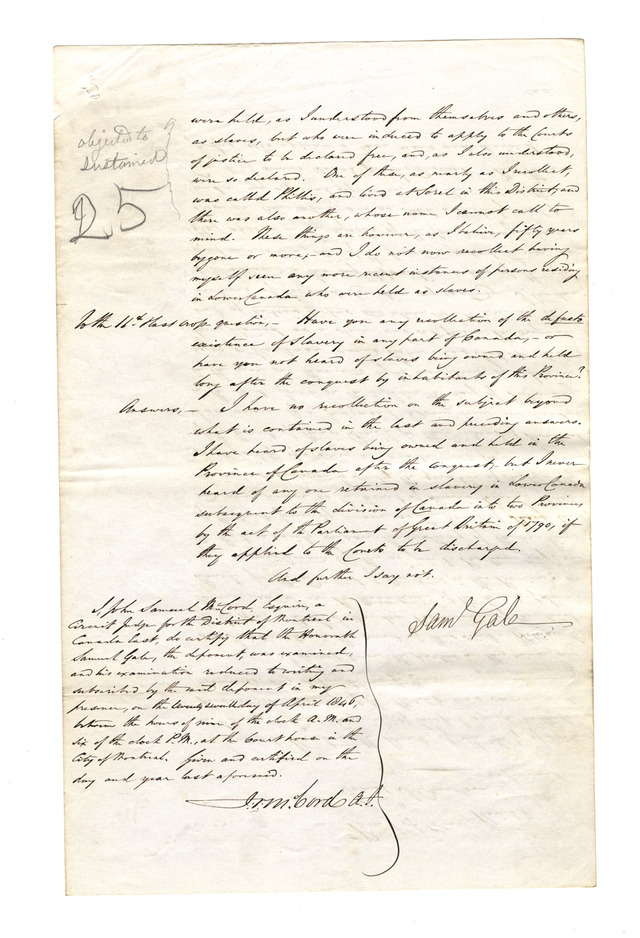 objected to
sustained
25
were held, as I understood from themselves and others,
as slaves, but who were induced to apply to the Courts
of justice to be declared free, and, as I also understood,
were so declared. One of these, as nearly as I recollect,
was called Phillis, and lived at Sorel in this District, and
there was also another, whose name I cannot call to
mind. These things are however, as I believe, fifty years
bygone or more, – and I do not now recollect having
myself seen any more recent instances of persons residing
in Lower Canada who were held as slaves.
To the 11th & last cross question, – Have you any recollection of the defacto
existence of slavery in any part of Canada, – or
have you not heard of slaves being owned and held
long after the conquest by inhabitants of this Province?
Answers, – I have no recollection on the subject beyond
what is contained in the last and preceding answers.
I have heard of slaves being owned and held in the
Province of Canada after the conquest, but I never
heard of any one retained in slavery in Lower Canada
subsequent to the division of Canada into two Provinces
by the act of the Parliament of Great Britain of 1790, if
they applied to the Courts to be discharged.
And further I say not.
Saml Gale
I, John Samuel McCord, Esquire, a
Circuit Judge for the District of Montreal in
Canada East, do certify that the Honorable
Samuel Gale, the deponent, was examined,
and his examination reduced to writing and
subscribed by the said deponent in my
presence, on the day of April 1846,
between the hours of nine of the clock A.M. and
six of the clock P.M., at the Court house in the
City of Montreal. Given and certified on the
day and year last aforesaid.
J. S. McCord